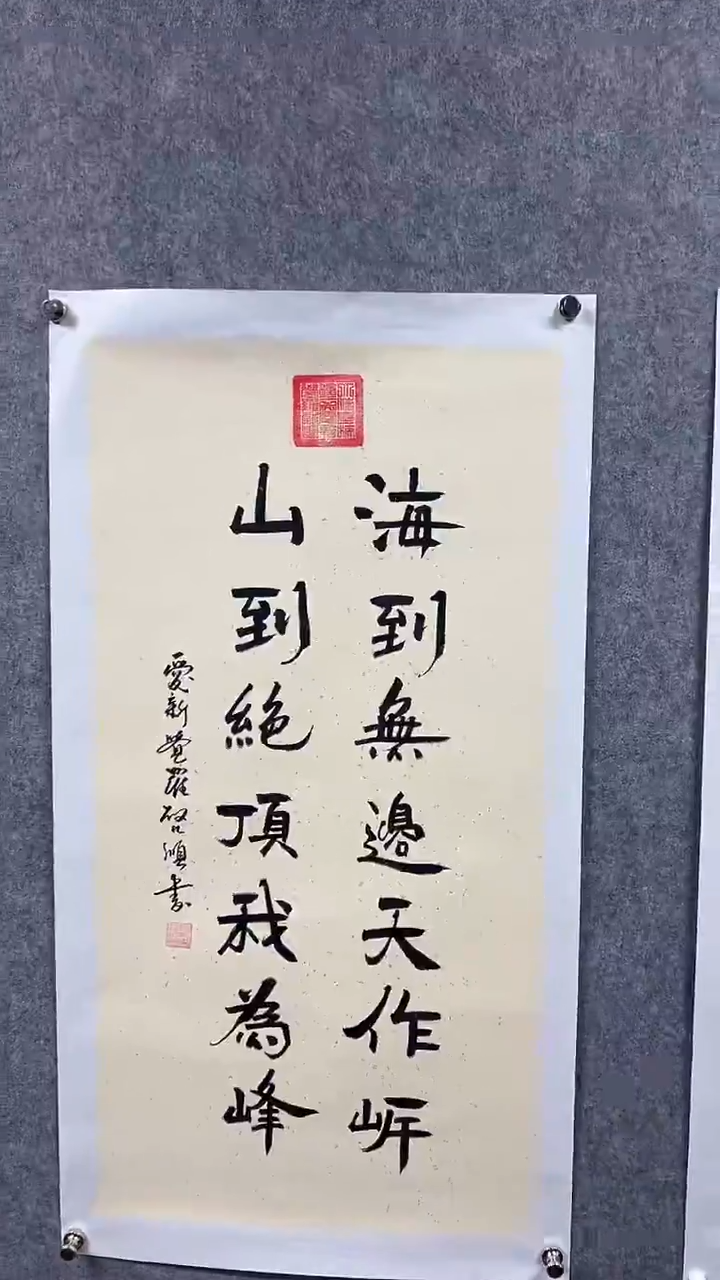 海到無邊天作岸
山到絶頂我為峰
愛新覺羅啓順書